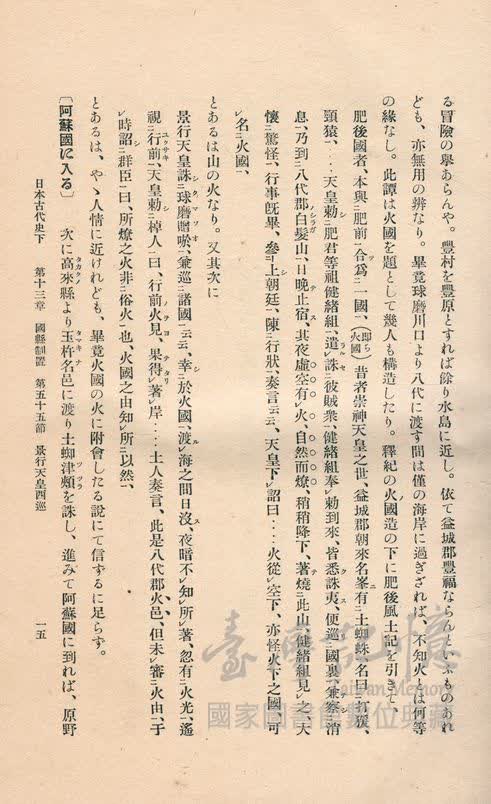 る冒險の擧あらんや。豐村を豐原とすれば餘り水島に近し。依て益城郡豐福ならんといふものあれ
ども、亦無用の辨なり。畢竟球磨川口より八代に渡す間は僅の海岸に過ぎざれば、不知火とは何等
の緣なし。此譚は火國を題として幾人も構造したり。釋紀の火國造の下に肥後風土記を引きて、
肥後國者、本與二肥前一合爲二一國一、(卽ち火國)昔者崇神天皇之世、益城郡朝來名峯有二土蜘蛛名曰二打猴、
頸猿一、‥‥天皇勅二肥君等祖健緒組一、遣レ誅二彼賊衆一、健緒組奉レ勅到來、皆悉誅夷、便巡二國裏一、兼察二消
息一、乃到二八代郡白髮山一、日晚止宿、其夜虛空有レ火、自然而燎、稍稍降下、著燒二此山一、健緒組見レ之、大
懷二驚怪一、行事旣畢、參二上朝廷一、陳二行狀一、奏言云云、天皇下レ詔曰‥‥火從レ空下、亦怪火下之國、可
レ名二火國一、
とあるは山の火なり。又其次に
景行天皇誅二球磨贈唹一、兼巡二諸國一云云、幸二於火國一、渡レ海之間日沒、夜暗不レ知レ所レ著、忽有二火光一、遙
視二行前一、天皇勅二棹人一曰、行前火見、果得レ著レ岸‥‥土人奏言、此是八代郡火邑、但未レ審二火由一、于
レ時詔二群臣一曰、所燎之火非二俗火一也、火國之由知レ所二以然一、
とあるは、やゝ人情に近けれども、畢竟火國の火に附會したる說にて信するに足らず。
〔阿蘇國に入る〕 次に高來縣より玉杵名邑に渡り土蜘津頰を誅し、進みて阿蘇國に到れば、原野
日本古代史下 第十三章 國縣制置 第五十五節 景行天皇西巡 一五
臺灣記憶
Taiwan Memory
國家圖書館數位典藏